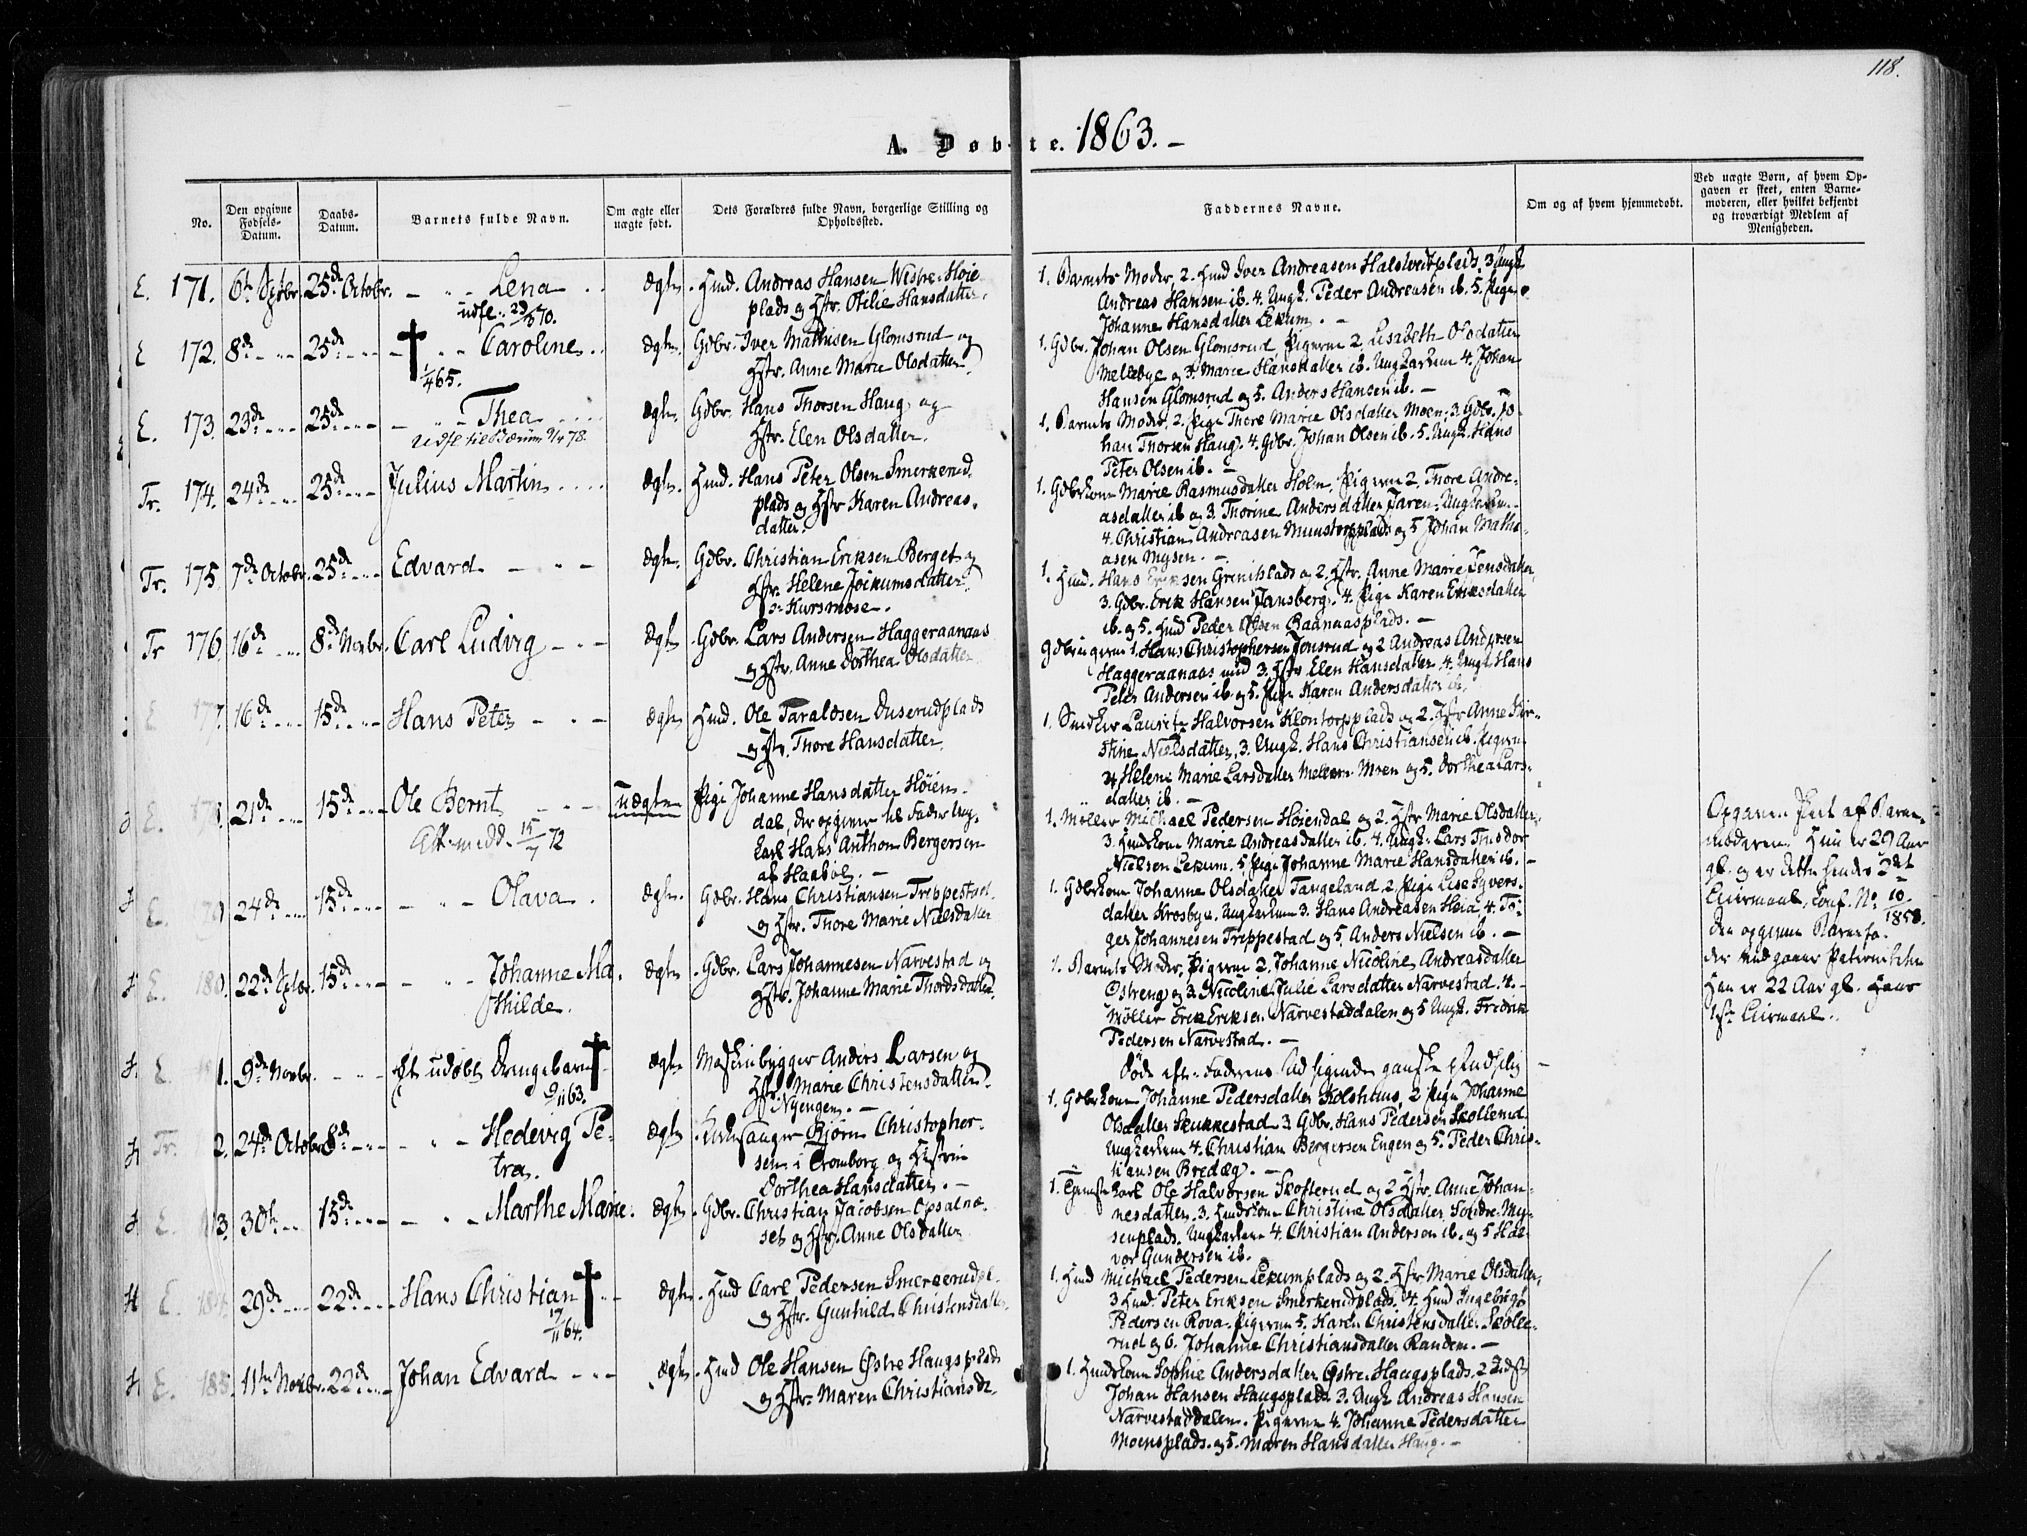 118.
A. Døbte. 1863. –
No.
Den opgivne Fødsels-Datum.
Daabs-Datum.
Barnets fulde Navn.
Om ægte eller uægte født.
Dets Forældres fulde Navn, borgerlige Stilling og Opholdssted.
Faddernes Navne.
Om og af hvem hjemmedøbt.
Ved uægte Børn, af hvem Opgaven er skeet, enten Barnemoderen, eller hvilket bekjendt og troværdigt Medlem af Menigheden.
E. 171. 25de Octobr. – Lena ægte. Huusmd. Andreas Hansen Høie-
plads og Hstr. Otilie Hansdatter.
1. Barnets Moder, 2. Huusmd Iver Andreasen 3. Ungk.
Andreas Hansen ib. 4. Ungk. Peder Andreasen ib. 5. Pige
Johanne Hansdatter Lekum. –
E 172. 8de 25de – Caroline ægte. Gdbr. Iver Mathisen Glomsrud og
Hstr. Anne Marie Olsdatter.
1/4 65.
1. Gdbr. Johan Olsen Glomsrud, Pigerne 2. Lisabeth Olsdatter
Mellebye og 3. Marie Hansdatter ib. Ungkarlene 4. Johan
Hansen Glomsrud og 5. Anders Hansen ib. –
E. 173. 23de 25de – Thea ægte. Gdbr. Hans Thorsen Haug og
Hstr. Elen Olsdatter.
1. Barnets Moder, 2. Pige Thore Marie Olsdatter Moen, 3. Gdbr. Jo-
han Thorsen Haug. 4. Gdbr. Johan Olsen ib. 5. Ungk. Hans
Peter Olsen ib. –
Tr. 174. 24de 25de Julius Martin ægte. Huusmd. Hans Peter Olsen Smerkerud-
plads og Hstr Karen Andreas-
datter.
1. Gdbrkone Marie Rasmusdatter Holm, Pigerne 2. Thore Andre-
asdatter ib og 3. Thorine Andersdatter Jaren. Ungkarlene
4. Christian Andreasen og 5 Johan Mathi-
asen Mysen. –
Tr. 175. 7de Octobr. 25de Edvard – ægte. Gdbr. Christian Eriksen Berget og
Hstr. Helene Jockumsdatter
Kursmose.
1. Huusmd. Hans Eriksen og 2. Hstr. Anne Marie Jensdatter,
3. Gdbr. Erik Hansen Jansberg. 4. Pige Karen Eriksdatter
ib. og 5. Huusmd Peder Olsen Raanaasplads. –
Tr 176. 16de 8de Novbr. Carl Ludvig – ægte Gdbr. Lars Andersen Haggeraanaas
og Hstr. Anne Dorthea Olsdatter
Gdbrugerne 1. Hans Christophersen Jonsrud og 2 Andreas Andersen
Haggeraanaas med 3. Hstr Elen Hansdatter. 4. Ungk. Hans
Peter Andersen ib og 5. Pige Karen Andersdatter ib.
E 177. 16de 15de Hans Peter – ægte Huusmd. Ole Taraldsen Duserudplads
og Hstr. Thore Hansdatter.
1. Laurits Halvorsen og 2. Hstr Anne Kir-
stine Nielsdatter, 3. Ungk. Hans Christiansen ib. Pigerne
4 Helene Marie Larsdatter og 5. Dorthea Lars-
datter ib. –
E. 21de 15de Ole Bernt – uægte Pige Johanne Hansdatter Høien-
dal, der opgiver til Fader Ung-
karl Hans Anthon Bergersen
af Haabøl. –
15/7 72
1. Møller Michael Pedersen Høiendal og 2. Hstr Marie Olsdatter,
3. Huuskone Marie Andreasdatter ib. 4. Ungk. Lars
Nielsen Lekum. 5. Pige Johanne Marie Hansdatter ib. –
Hun er 29 Aar
gl. og er dette hendes 2det
Leiermaal, Conf. No. 10/1858.
Han er 22 Aar gl. Hans
1ste Leiermaal.
E. 24de 15de – Olava ægte. Gdbr. Hans Christiansen Treppestad
og Hstr. Thore Marie Nielsdatter
1. Gdbrkone Johanne Olsdatter Tangeland 2. Pige Lise Syvers-
datter Krosbye. Ungkarlene 3. Hans Andreasen 4. To-
ger Johannesen Treppestad og 5. Anders Nielsen ib. –
E. 180. 22de 15de – Johanne Ma-
thilde. ægte Gdbr. Lars Johannesen Narvestad og
Hstr. Johanne Marie Thordsdatter.
1. Barnets Moder, Pigerne 2. Johanne Nicoline Andreasdatter
Østreng og 3. Nicoline Julie Larsdatter Narvestad. 4. –
Møller Erik Eriksen Narvestaddalen og 5 Ungk. Fredrik
Pedersen Narvestad. –
E. 1. 9de Novbr. Et udøbt Drengebarn ægte Maskinbygger Anders Larsen og
Hstr. Marie Christensdatter.
Nyengen. –
9/11 63.
Tr. 2. 24de Octobr 8de – Hedevig Pe-
tra. ægte Kirkesanger Bjørn Christopher-
sen i Tromborg og Hustru
Dorthea Hansdatter. –
1. Gdbrkone Johanne Pedersdatter Kolshuus, 2 Pige Johanne
Olsdatter Skukkestad 3 Gdbr. Hans Pedersen Skollerud
Ungkarlene 4. Christian Bergersen Engen og 5. Peder Chris-
tiansen Bredæg. –
E. 3. 30te 15de – Marthe Marie. ægte Gdbr. Christian Jacobsen Opsalnæ-
set og Hstr. Anne Olsdatter
1. Tjenestekarl Ole Halvorsen Skofterud og 2 Hstr. Anne Johan-
nesdatter. 3. Huuskone Christine Olsdatter Søndre-My-
senplads. Ungkarlene 4. Christian Andersen ib. og 5 Hal-
vor Gundersen ib.
E. 184. 29de 22de Hans Christian ægte. Huusmd Carl Pedersen Smerkerud
og Hstr. Gunhild Christensdatter.
17/11 64.
1. Huusmd Michael Pedersen Lekumplads og 2. Hstr Marie Olsdatter,
3 Huusmd. Peter Eriksen Smerkerudplads. 4. Huusmd
Pedersen Rova. Pigerne 5. Karen Christensdatter Skolle-
rud og 6. Johanne Christiansdatter Randem. –
E. 185. 11te Novbr. 22de Johan Edvard ægte. Huusmd Ole Hansen Østre Haugsplads
og Hstr. Maren Christiansd.
1. Huuskone Sophie Andersdatter Østre Haugsplads. 2
Johan Hansen Haugsplads 3. Ungk. Andreas Hansen
Narvestaddalen. Pigerne 4. Johanne Pedersdatter
Moensplads. og 5. Maren Hansdatter Haug. –